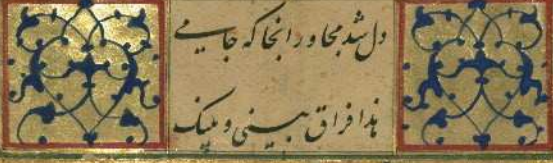 دل شد مجاور انجا که جامی
هذا فراق بینی و بینک